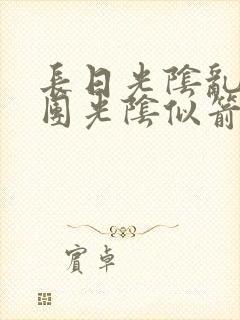 長日光陰亂
團光陰似箭
賓卓